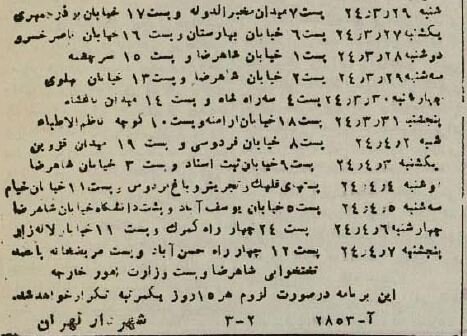 شنبه ۲۴٫۳٫۲۹ پست ۷ میدان مخبرالدوله و پست ۱۷ خیابان بوذرجمهری
یکشنبه ۲۴٫۳٫۲۷ پست ۶ خیابان بهارستان و پست ۱۶ خیابان ناصرخسرو
دوشنبه ۲۴٫۳٫۲۸ پست ۱ خیابان شاهرضا و پست ۱۵ سرچشمه
سه‌شنبه ۲۴٫۳٫۲۹ پست ۲ خیابان شاهرضا و پست ۱۳ خیابان پهلوی
چهارشنبه ۲۴٫۳٫۳۰ پست ۴ سه‌راه شاه و پست ۱۴ میدان باغشاه
پنجشنبه ۲۴٫۳٫۳۱ پست ۱۸ خیابان ارامنه و پست ۱۰ کوچه ناظم‌الاطباء
شنبه ۲۴٫۴٫۲ پست ۸ خیابان فردوسی و پست ۱۹ میدان قزوین
یکشنبه ۲۴٫۴٫۳ پست ۹ خیابان ثبت اسناد و پست ۳ خیابان شاهرضا
دوشنبه ۲۴٫۴٫۴ پستهای قلهک و تجریش و باغ فردوس و پست ۱۱ خیابان خیام
سه‌شنبه ۲۴٫۴٫۵ پست ۵ خیابان یوسف‌آباد و پشت دانشگاه خیابان شاهرضا
چهارشنبه ۲۴٫۴٫۶ پست ۲۴ چهار راه گمرک و پست ۱۱ خیابان لاله‌زار
پنجشنبه ۲۴٫۴٫۷ پست ۱۲ چهار راه حسن‌آباد و پست مریضخانه پانصد
تختخوابی شاهرضا و پست وزارت امور خارجه
این برنامه درصورت لزوم هر ۱۵ روز یکمرتبه تکرار خواهد شد.
آ-۲۸۵۳ ۲-۳ شهردار تهران